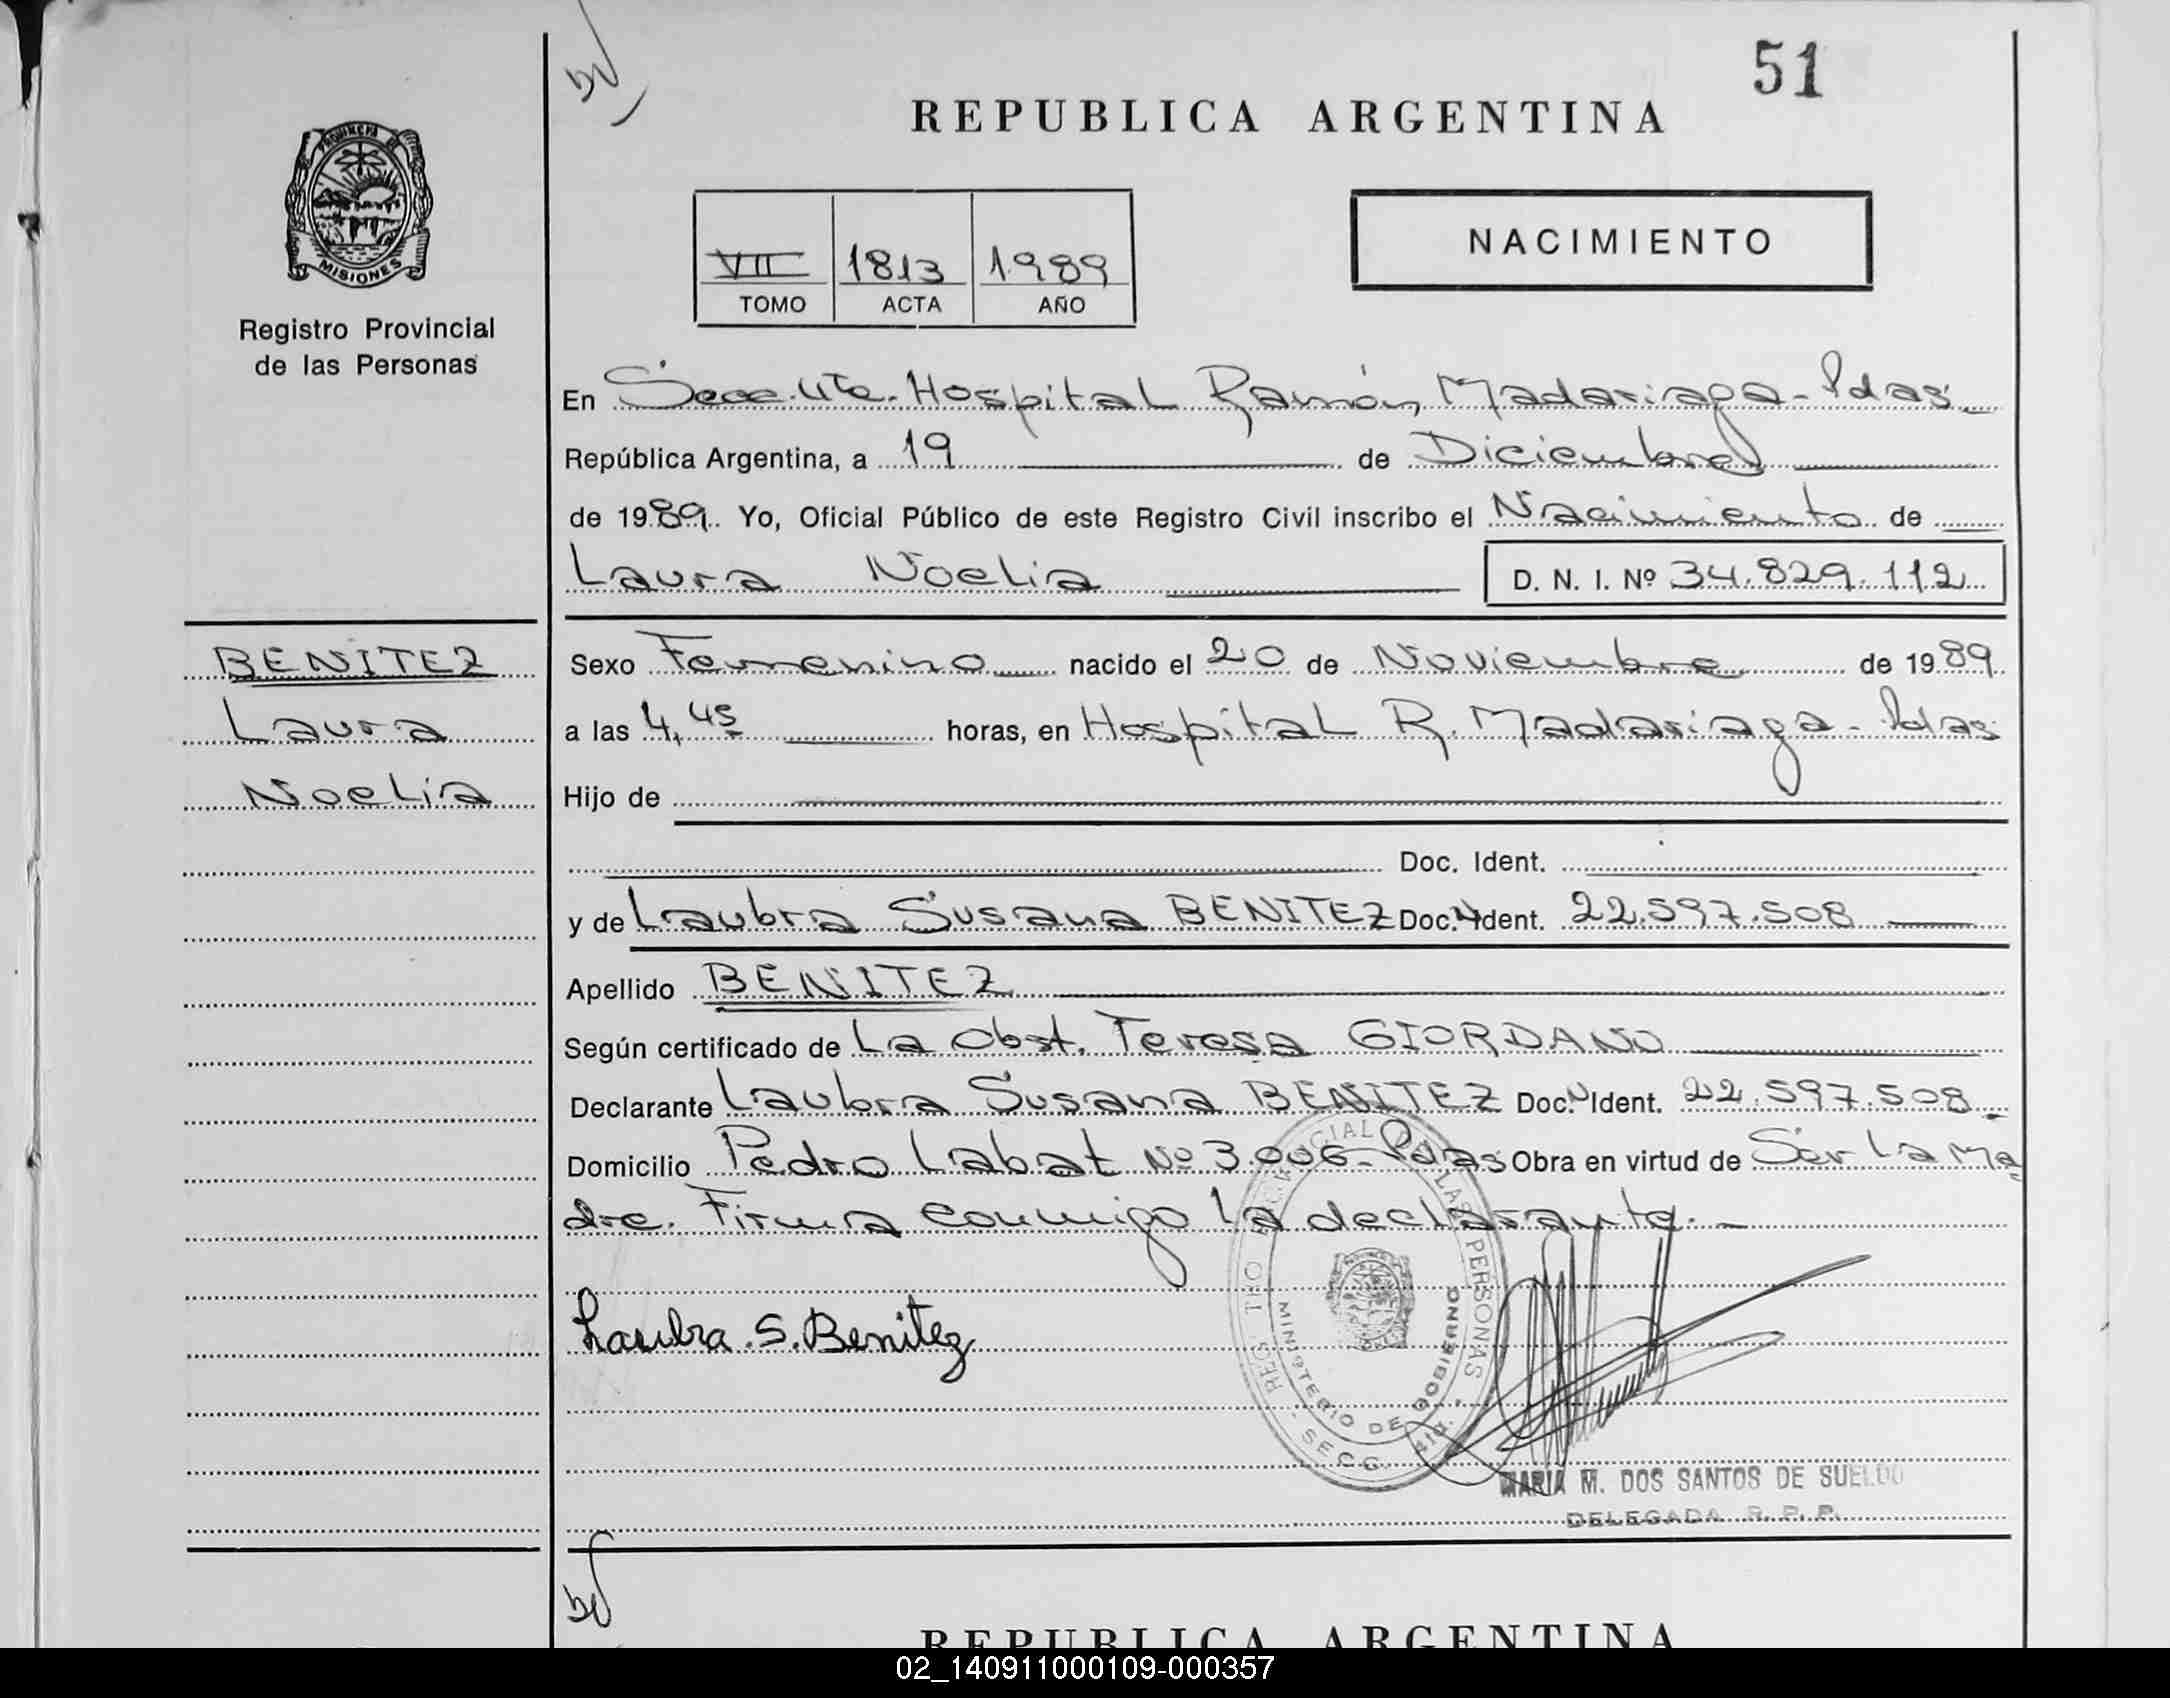 51
REPUBLICA ARGENTINA
PROVINCIA DE
MISIONES
Registro Provincial
de las Personas
VII 1813 1989
TOMO ACTA AÑO
NACIMIENTO
En Secc. 4ta. Hospital Ramón Madariaga - Pdas
República Argentina, a 19 de Diciembre
de 1989. Yo, Oficial Público de este Registro Civil inscribo el Nacimiento de
Laura Noelia D. N. I. Nº 34.829.112
BENITEZ
Laura
Noelia
Sexo Femenino nacido el 20 de Noviembre de 1989
a las 4,45 horas, en Hospital R. Madariaga - Pdas
Hijo de
Doc. Ident.
y de Laubra Susana BENITEZ Doc. Ident. 22.597.508
Apellido BENITEZ
Según certificado de La Obst. Teresa GIORDANO
Declarante Laubra Susana BENITEZ Doc. Ident. 22.597.508.
Domicilio Pedro Labat Nº 3.006 - Pdas Obra en virtud de Ser La Ma
dre. Firma conmigo la declarante. -
Laubra. S. Benitez
REGISTRO PROVINCIAL DE LAS PERSONAS
MINISTERIO DE GOBIERNO
SECC. 4ta.
MARIA M. DOS SANTOS DE SUELDO
DELEGADA R. P. P.
REPUBLICA ARGENTINA
02_140911000109-000357